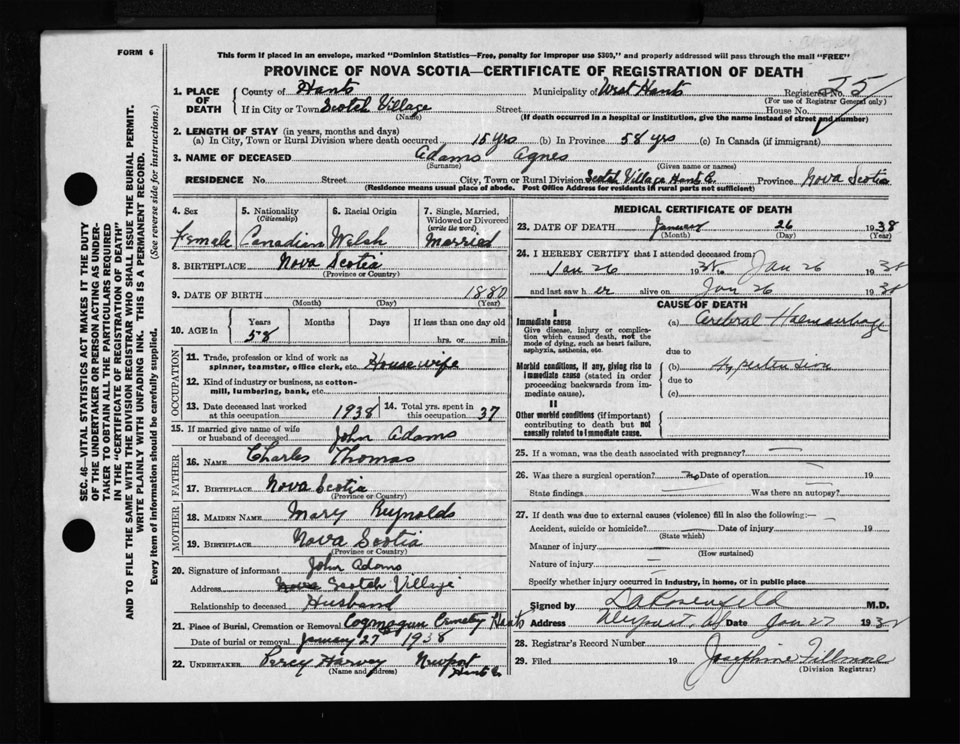 FORM 6
This form if placed in an envelope, marked "Dominion Statistics—Free, penalty for improper use $300," and properly addressed will pass through the mail "FREE"
PROVINCE OF NOVA SCOTIA—CERTIFICATE OF REGISTRATION OF DEATH
SEC. 46—VITAL STATISTICS ACT MAKES IT THE DUTY
OF THE UNDERTAKER OR PERSON ACTING AS UNDER-
TAKER TO OBTAIN ALL THE PARTICULARS REQUIRED
IN THE "CERTIFICATE OF REGISTRATION OF DEATH"
AND TO FILE THE SAME WITH THE DIVISION REGISTRAR WHO SHALL ISSUE THE BURIAL PERMIT.
WRITE PLAINLY WITH UNFADING INK. THIS IS A PERMANENT RECORD.
Every item of information should be carefully supplied. (See reverse side for instructions.)
1. PLACE OF DEATH County of Hants Municipality of West Hants Registered No. 75
(For use of Registrar General only)
If in City or Town Scotch Village Street House No.
(Name) (If death occurred in a hospital or institution, give the name instead of street and number)
2. LENGTH OF STAY (in years, months and days)
(a) In City, Town or Rural Division where death occurred 15 yrs (b) In Province 58 yrs (c) In Canada (if immigrant)
3. NAME OF DECEASED Adams Agnes
(Surname) (Given name or names)
RESIDENCE No. Street City, Town or Rural Division Scotch Village Hants Co. Province Nova Scotia
(Residence means usual place of abode. Post Office Address for residents in rural parts not sufficient)
4. Sex 5. Nationality (Citizenship) 6. Racial Origin 7. Single, Married, Widowed or Divorced (write the word)
Female Canadian Welsh Married
8. BIRTHPLACE Nova Scotia
(Province or Country)
9. DATE OF BIRTH 1880
(Month) (Day) (Year)
10. AGE in Years Months Days If less than one day old
58 hrs. or min.
OCCUPATION
11. Trade, profession or kind of work as spinner, teamster, office clerk, etc. Housewife
12. Kind of industry or business, as cotton-mill, lumbering, bank, etc.
13. Date deceased last worked at this occupation 1938 14. Total yrs. spent in this occupation 37
15. If married give name of wife or husband of deceased John Adams
FATHER
16. NAME Charles Thomas
17. BIRTHPLACE Nova Scotia
(Province or Country)
MOTHER
18. MAIDEN NAME Mary Reynolds
19. BIRTHPLACE Nova Scotia
(Province or Country)
20. Signature of informant John Adams
Address Nova Scotch Village
Relationship to deceased Husband
21. Place of Burial, Cremation or Removal Cogmagun Cemetery Hants
Date of burial or removal January 27 1938
22. UNDERTAKER Percy Harvey Newport
(Name and address) Hants Co
MEDICAL CERTIFICATE OF DEATH
23. DATE OF DEATH January 26 1938
(Month) (Day) (Year)
24. I HEREBY CERTIFY that I attended deceased from
Jan 26 1938 to Jan 26 1938
and last saw her alive on Jan 26 1938
CAUSE OF DEATH
I
Immediate cause (a) Cerebral Haemorrhage
Give disease, injury or complication which caused death, not the mode of dying, such as heart failure, asphyxia, asthenia, etc.
due to
Morbid conditions, if any, giving rise to immediate cause (stated in order proceeding backwards from immediate cause). (b) Hypertension
due to
(c)
II
Other morbid conditions (if important) contributing to death but not causally related to immediate cause.
25. If a woman, was the death associated with pregnancy?
26. Was there a surgical operation? no Date of operation 19
State findings Was there an autopsy?
27. If death was due to external causes (violence) fill in also the following:—
Accident, suicide or homicide? Date of injury 19
(State which)
Manner of injury
(How sustained)
Nature of injury
Specify whether injury occurred in industry, in home, or in public place
Signed by M.D.
Address Newport, Date Jan 27 193
28. Registrar's Record Number
29. Filed 19 Josephine Fillmore
(Division Registrar)